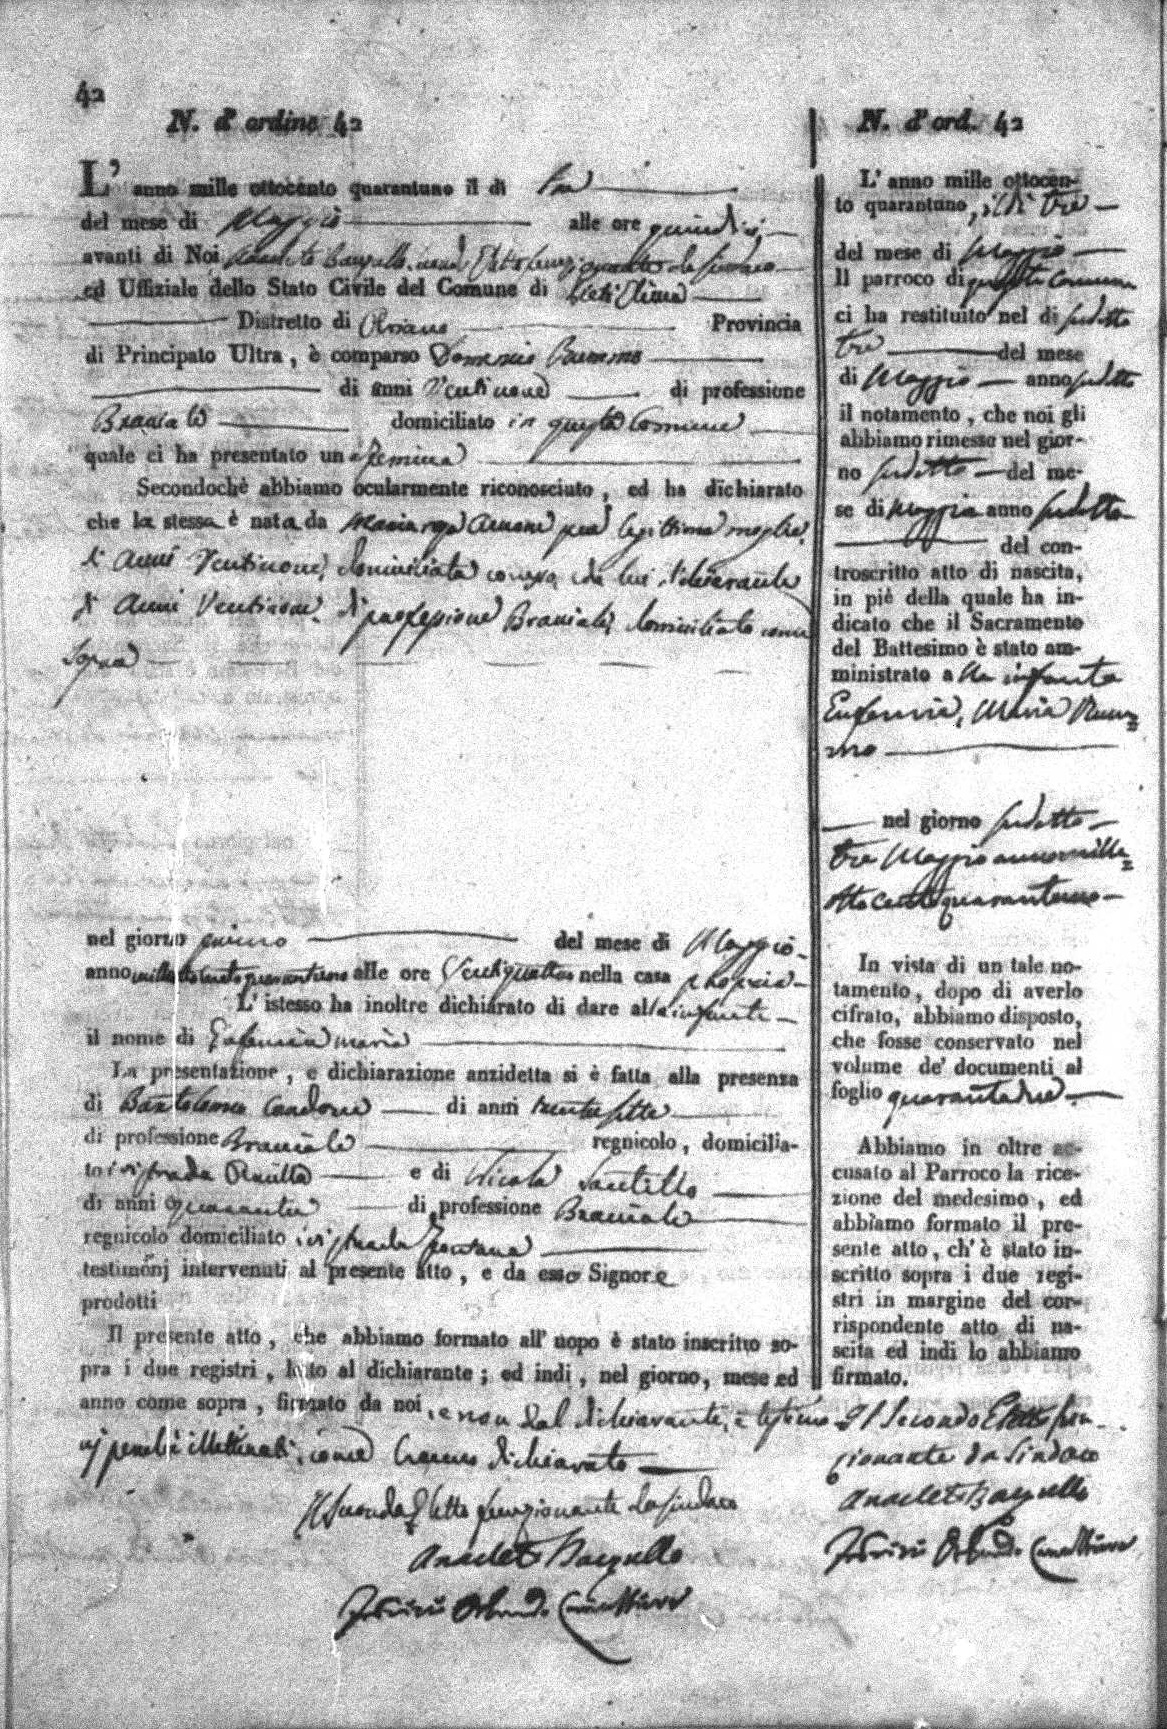 42
N. d' ordine 42
L' anno mille ottocento quarantuno il di tre
del mese di Maggio alle ore quindici
avanti di Noi Anacleto secondo Eletto funzionante da Sindaco
ed Uffiziale dello Stato Civile del Comune di
Distretto di Ariano Provincia
di Principato Ultra, è comparso Domenico Rummo
di anni Ventinove di professione
Bracciale domiciliato in questa Comune
quale ci ha presentato una femina
Secondochè abbiamo ocularmente riconosciuto, ed ha dichiarato
che la stessa è nata da Maria sua legittima moglie
di Anni Ventinove, domiciliata come sopra e da lui dichiarante
di Anni Ventinove di professione Bracciale, domiciliato come
sopra
nel giorno primo del mese di Maggio
anno mille ottocento quarantuno alle ore Ventiquattro nella casa propria
L' istesso ha inoltre dichiarato di dare alla infante
il nome di Eufemia Maria
La presentazione, e dichiarazione anzidetta si è fatta alla presenza
di Bartolomeo Cardone di anni trentasette
di professione Bracciale regnicolo, domicilia-
to in strada e di Nicola Santillo
di anni quaranta di professione Bracciale
regnicolo domiciliato in strada Fontana
testimonj intervenuti al presente atto, e da esso Signore
prodotti
Il presente atto, che abbiamo formato all' uopo è stato inscritto so-
pra i due registri, letto al dichiarante; ed indi, nel giorno, mese ed
anno come sopra, firmato da noi, e non dal dichiarante, e testimo
nj perché illetterati, come hanno dichiarato
Il Secondo Eletto funzionante da Sindaco
Anacleto
Cancelliere
N. d' ord. 42
L' anno mille ottocen-
to quarantuno, il di tre
del mese di Maggio
Il parroco di questa Comune
ci ha restituito nel di sudetto
tre del mese
di Maggio anno sudetto
il notamento, che noi gli
abbiamo rimesso nel gior-
no sudetto del me-
se di Maggio anno sudetto
del con-
troscritto atto di nascita,
in piè della quale ha in-
dicato che il Sacramento
del Battesimo è stato am-
ministrato a lla infanta
Eufemia, Maria Rum=
mo
nel giorno sudetto
tre Maggio anno mille=
ottocento quarantuno
In vista di un tale no-
tamento, dopo di averlo
cifrato, abbiamo disposto,
che fosse conservato nel
volume de' documenti al
foglio quarantadue
Abbiamo in oltre ac-
cusato al Parroco la rice-
zione del medesimo, ed
abbiamo formato il pre-
sente atto, ch' è stato in-
scritto sopra i due regi-
stri in margine del cor-
rispondente atto di na-
scita ed indi lo abbiamo
firmato.
Il Secondo Eletto fun
zionante da Sindaco
Anacleto
Cancelliere